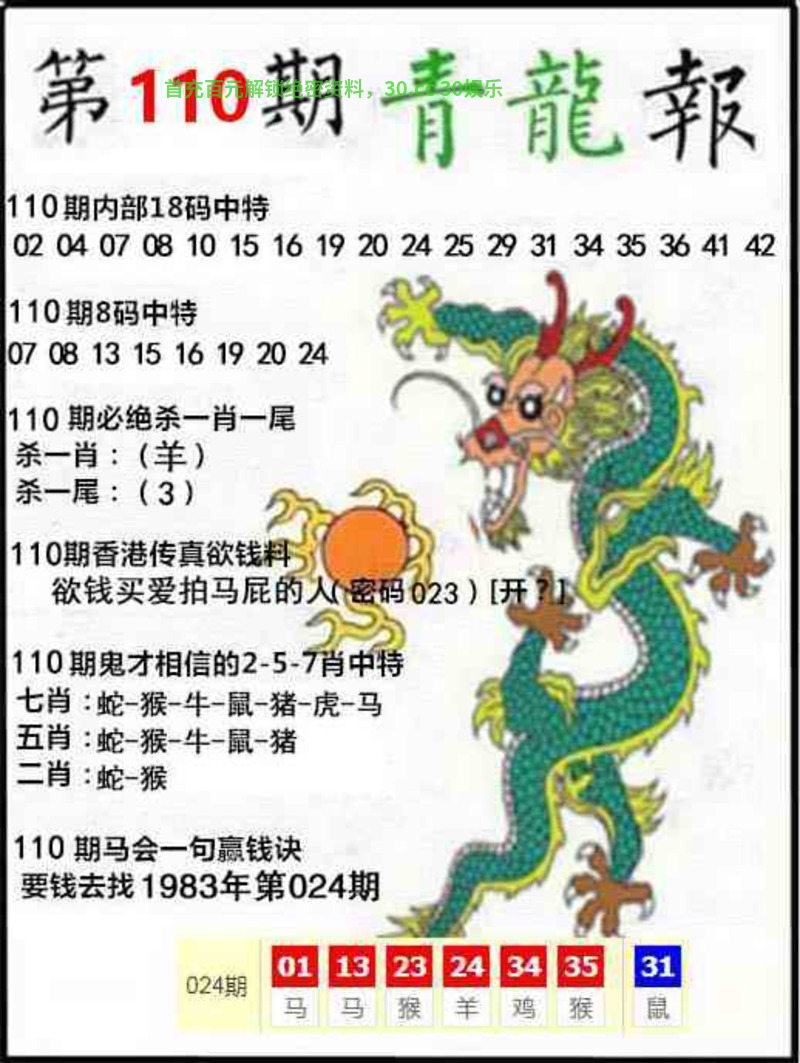 第110期 青龍報
首充百元解锁绝密资料，30.cc 30娱乐
110期内部18码中特
02 04 07 08 10 15 16 19 20 24 25 29 31 34 35 36 41 42
110期8码中特
07 08 13 15 16 19 20 24
110期必绝杀一肖一尾
杀一肖：（羊）
杀一尾：（3）
110期香港传真欲钱料
欲钱买爱拍马屁的人(密码023）[开？]
110期鬼才相信的2-5-7肖中特
七肖：蛇-猴-牛-鼠-猪-虎-马
五肖：蛇-猴-牛-鼠-猪
二肖：蛇-猴
110期马会一句赢钱诀
要钱去找1983年第024期
024期 01 13 23 24 34 35 31
马 马 猴 羊 鸡 猴 鼠